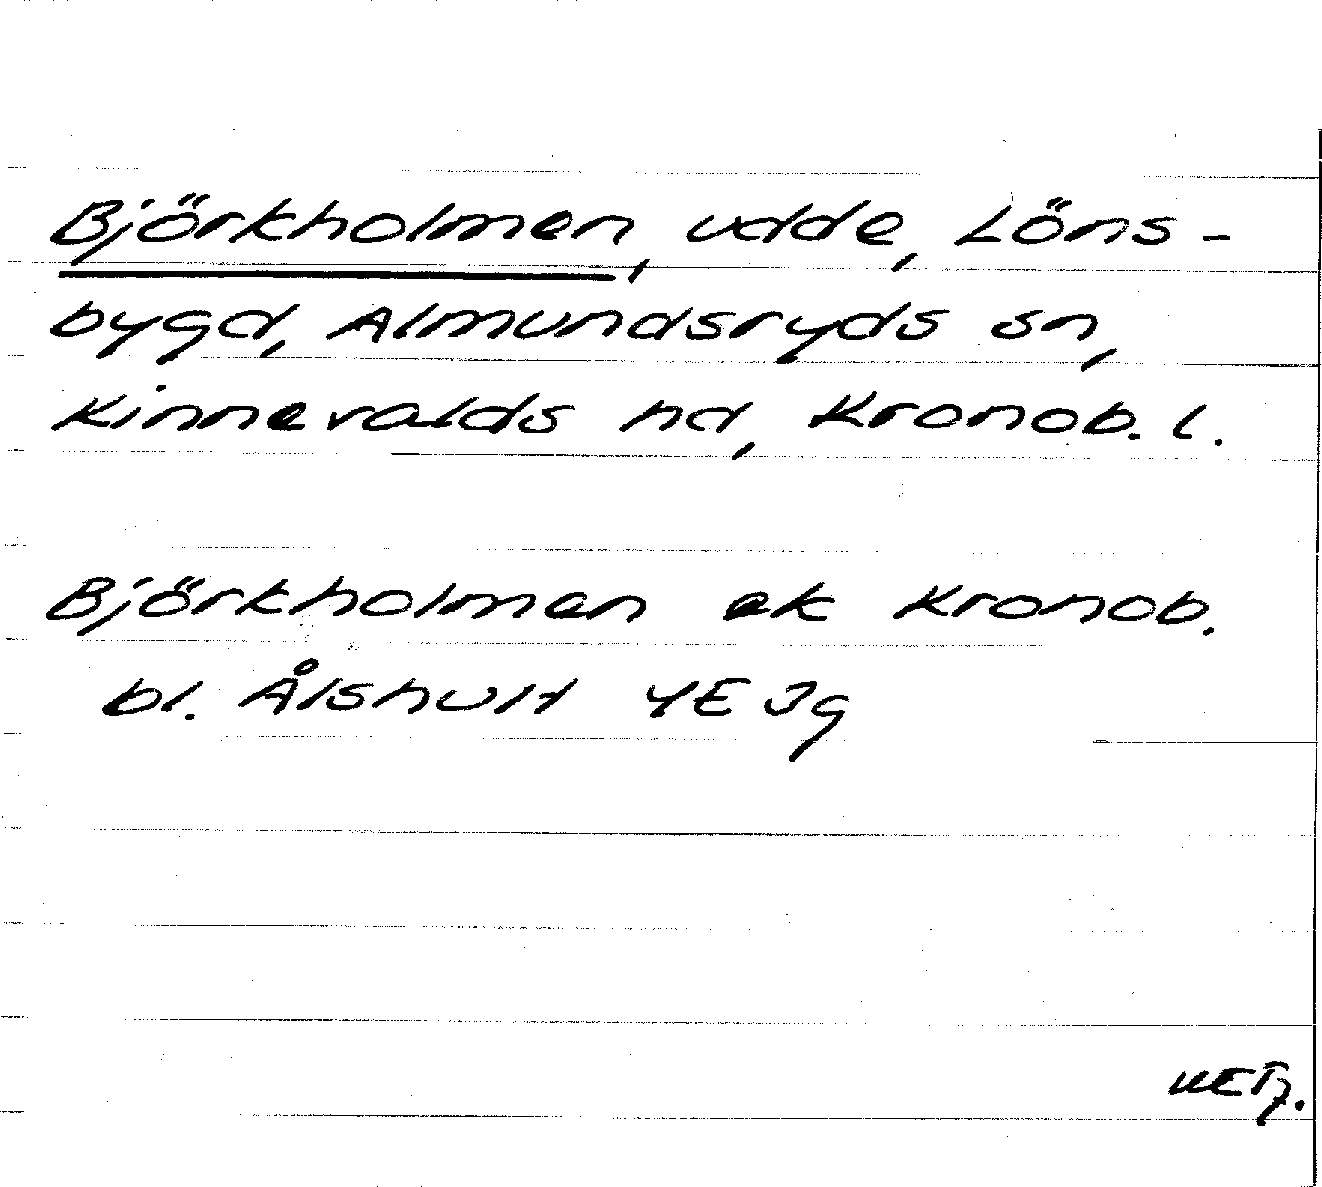 Björkholmen, udde, Löns-
bygd, Almundsryds sn,
Kinnevalds hd, Kronob. l.
Björkholmen ek Kronob.
bl. Ålshult 4E Jg